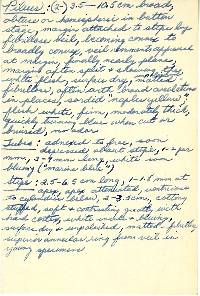 Pileus: (2-) 3.5 - 10.5 cm broad,
obtuse or hemispheric in button
stage, margin attached to stipe by
fibrillose veil, becoming convex to
broadly convex, veil remnants appressed
at margin, finally nearly plane,
margin often split
surface dry,
fibrillose, often with broad areolations
in places, sordid
flesh white, firm, moderately thick,
quickly bluing when cut or
bruised, no odor
Tubes: adnexed to free, soon
depressed about stipe, 1-2 per
mm, 3-9 mm long, white
bluing ("marine blue")
Stipe: 3.5-6.5 cm long, 1-1.8 mm at
apex, apex attenuated, ventricose
to cylindric below, 2-3.5 cm, cottony
stuffed, soft & contrasting greatly with
hard cortex, white inside & bluing,
surface dry & unpolished, matted fibrillose
superior annular ring from veil in
young specimens